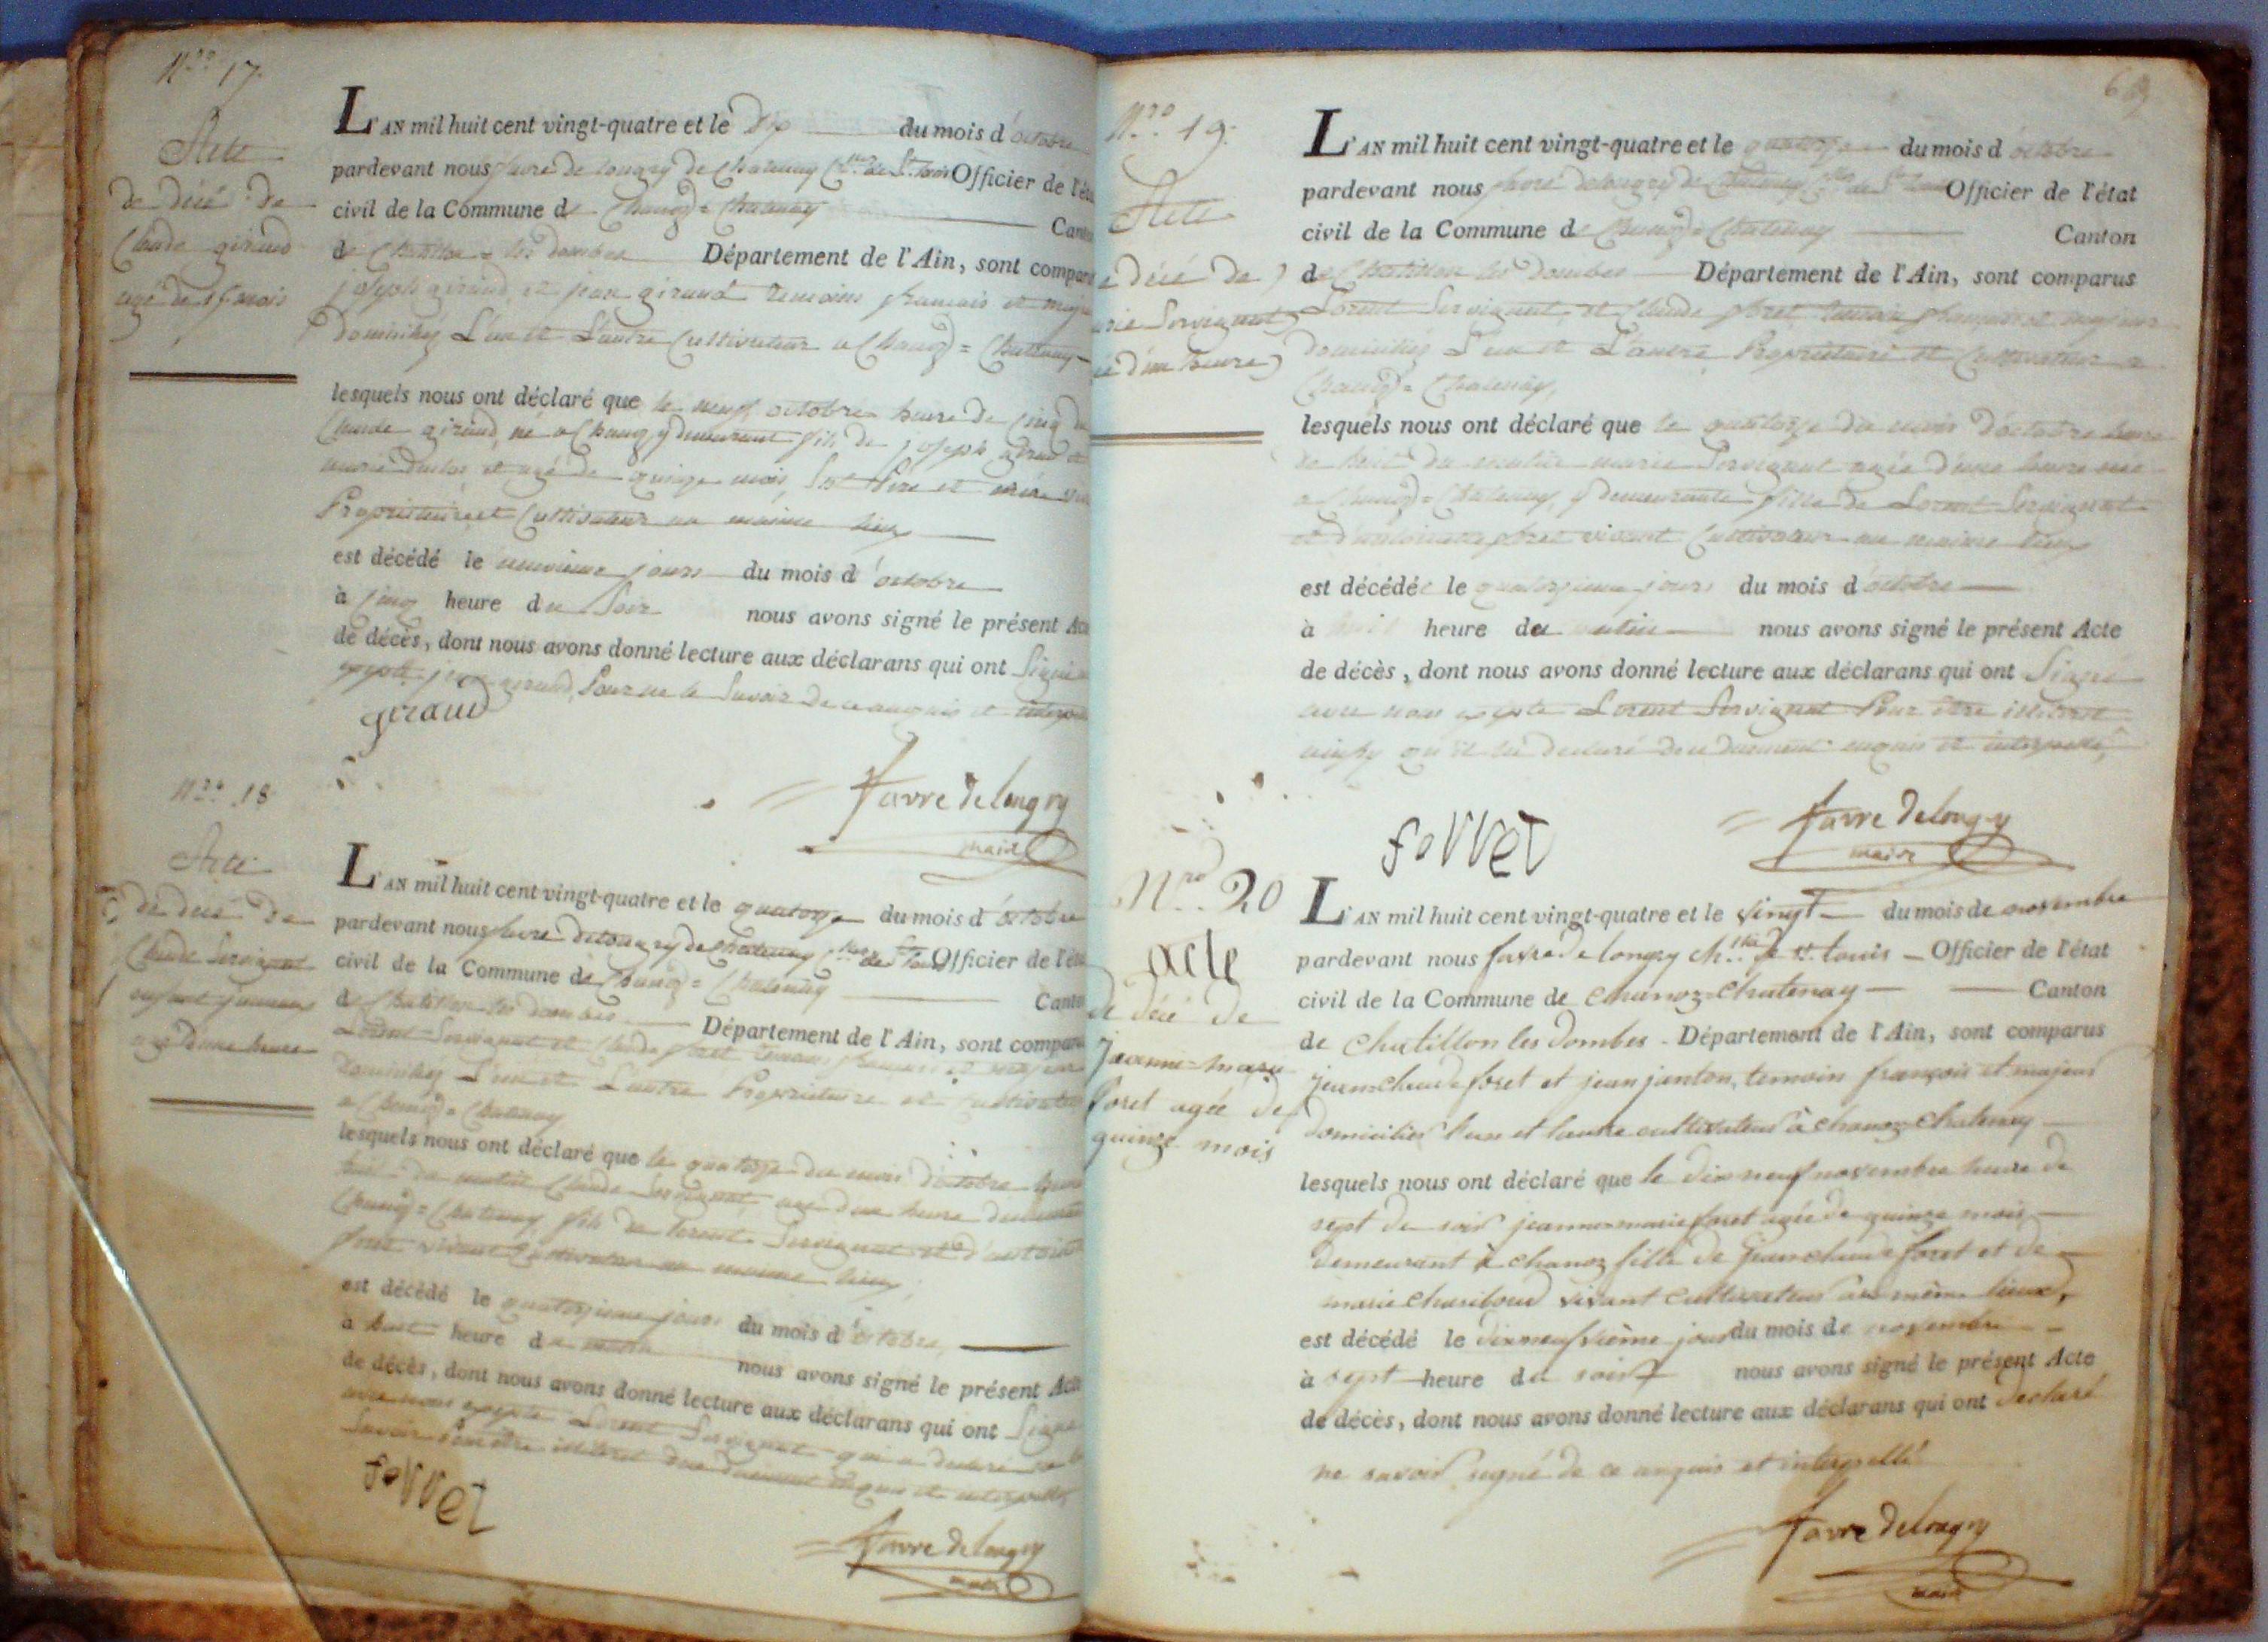 Nro 17.
Acte
de décé de
Claude giraud
agé de 15 mois
L'AN mil huit cent vingt-quatre et le dix du mois d'octobre
pardevant nous favre de longry de Chatenay Officier de l'éta
civil de la Commune de Chanoz=Chatenay Canton
de Chatillon les dombes Département de l'Ain, sont comparu
joseph giraud et jean giraud temoins francais et maje
domiciliez L'un et L'autre Cultivateur a Chanoz=Chatenay
lesquels nous ont déclaré que le neuf octobre heure de cinq du
Claude giraud né a Chanoz y demeurant fils de joseph giraud et
marie et agé de quinze mois, Ses Pere et mére
Proprietaire et Cultivateur au maime lieu
est décédé le neuvieme jours du mois d'octobre
à cinq heure du Soir nous avons signé le présent Acte
de décès, dont nous avons donné lecture aux déclarans qui ont Signé
exepte jean giraud, Pour ne le Savoir de ce anquis et interpe
giraud
favre de longry
maire
Nro 18
Acte
de décé de
Claude Servignat
enfant jumeau
agé d'une heure
L'AN mil huit cent vingt-quatre et le quatorze du mois d'octobre
pardevant nous favre de longry de Chatenay Officier de l'éta
civil de la Commune de Chanoz=Chatenay Canton
de Chatillon les dombes Département de l'Ain, sont comparu
Lorent Servignat et Claude foret temoin francais et majeur
domiciliez L'un et L'autre Proprietaire et Cultivateur
a Chanoz=Chatenay
lesquels nous ont déclaré que le quatorze du mois d'octobre heure
huit du matin Claude Servignat, agé d'une heure demeurant
Chanoz=Chatenay fils de Lorent Servignat et d'antoinette
foret vivant Cultivateur au maime lieu,
est décédé le quatorzieme jours du mois d'octobre,
à huit heure du matin nous avons signé le présent Acte
de décès, dont nous avons donné lecture aux déclarans qui ont Signé
avec nous exepte Lorent Servignat qui a declaré ne le
Savoir Pour être illiteret de ce duement enquis et interpellé,
forret
favre de longry
maire
69
Nro 19.
Acte
e décé de
arie Servignat
ée d'un heure
L'AN mil huit cent vingt-quatre et le quatorze du mois d'octobre
pardevant nous favre delongry de Chatenay Officier de l'état
civil de la Commune de Chanoz=Chatenay Canton
de Chatillon les dombes Département de l'Ain, sont comparus
Lorent Servignat, et Claude foret temoin francais et majeur
domiciliés L'un et L'autre Proprietaire et Cultivateur a
Chanoz=Chatenay,
lesquels nous ont déclaré que le quatorze du mois d'octobre heure
de huit du matin marie Servignat agée d'une heure née
a Chanoz=Chatenay, y demeurante fille de Lorent Servignat
et d'antoinette foret vivant Cultivateur au maime lieu
est décédée le quatorzieme jours du mois d'octobre
à huit heure du matin nous avons signé le présent Acte
de décès, dont nous avons donné lecture aux déclarans qui ont Signé
avec nous exepte Lorent Servignat Pour être illiteret
ainsy qu'il la declaré de ce duement enquis et interpellé,
forret
favre delongry
maire
Nro 20
acte
de décé de
jeanne-marie
foret agée de
quinze mois
L'AN mil huit cent vingt-quatre et le vingt du mois de novembre
pardevant nous favre de longry Ch.lier de st. louis Officier de l'état
civil de la Commune de chanoz-chatenay Canton
de chatillon les dombes Département de l'Ain, sont comparus
jean-claude foret et jean janton, temoin françois et majeur
domicilies l'un et lautre cultivateur à chanoz chatenay
lesquels nous ont déclaré que le dix neuf novembre heure de
sept du soir jeanne-marie foret agée de quinze mois
demeurant à chanoz fille de jean claude foret et de
marie chariboud vivant cultivateur au même lieux,
est décédé le dix neufvième jour du mois de novembre
à sept heure du soir nous avons signé le présent Acte
de décès, dont nous avons donné lecture aux déclarans qui ont declaré
ne savoir signé de ce anquis et interpellé
favre delongry
maire